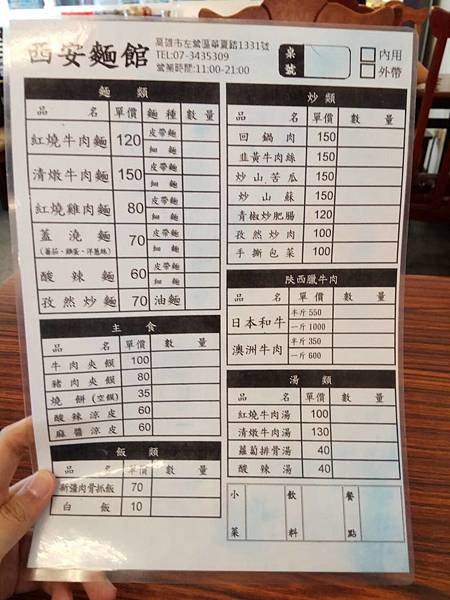 西安麵館
高雄市左營區華夏路1331號
TEL:07-3435309
營業時間:11:00-21:00
桌號
內用
外帶
麵類
品名 單價 麵種 數量
紅燒牛肉麵 120 皮帶麵 細麵
清燉牛肉麵 150 皮帶麵 細麵
紅燒雞肉麵 80 皮帶麵 細麵
蓋澆麵 70 皮帶麵 細麵
(蕃茄、雞蛋、洋蔥絲)
酸辣麵 60 皮帶麵 細麵
孜然炒麵 70 油麵
主食
品名 單價 數量
牛肉夾饃 100
豬肉夾饃 80
燒餅(空饃) 35
酸辣涼皮 60
麻醬涼皮 60
飯類
品名 單價 數量
新疆肉骨抓飯 70
白飯 10
炒類
品名 單價 數量
回鍋肉 150
韭黃牛肉絲 150
炒山苦瓜 150
炒山蘇 150
青椒炒肥腸 120
孜然炒肉 100
手撕包菜 100
陝西臘牛肉
品名 單價 數量
日本和牛 半斤 550
一斤 1000
澳洲牛肉 半斤 350
一斤 600
湯類
品名 單價 數量
紅燒牛肉湯 100
清燉牛肉湯 130
蘿蔔排骨湯 40
酸辣湯 40
小菜
飲料
餐點